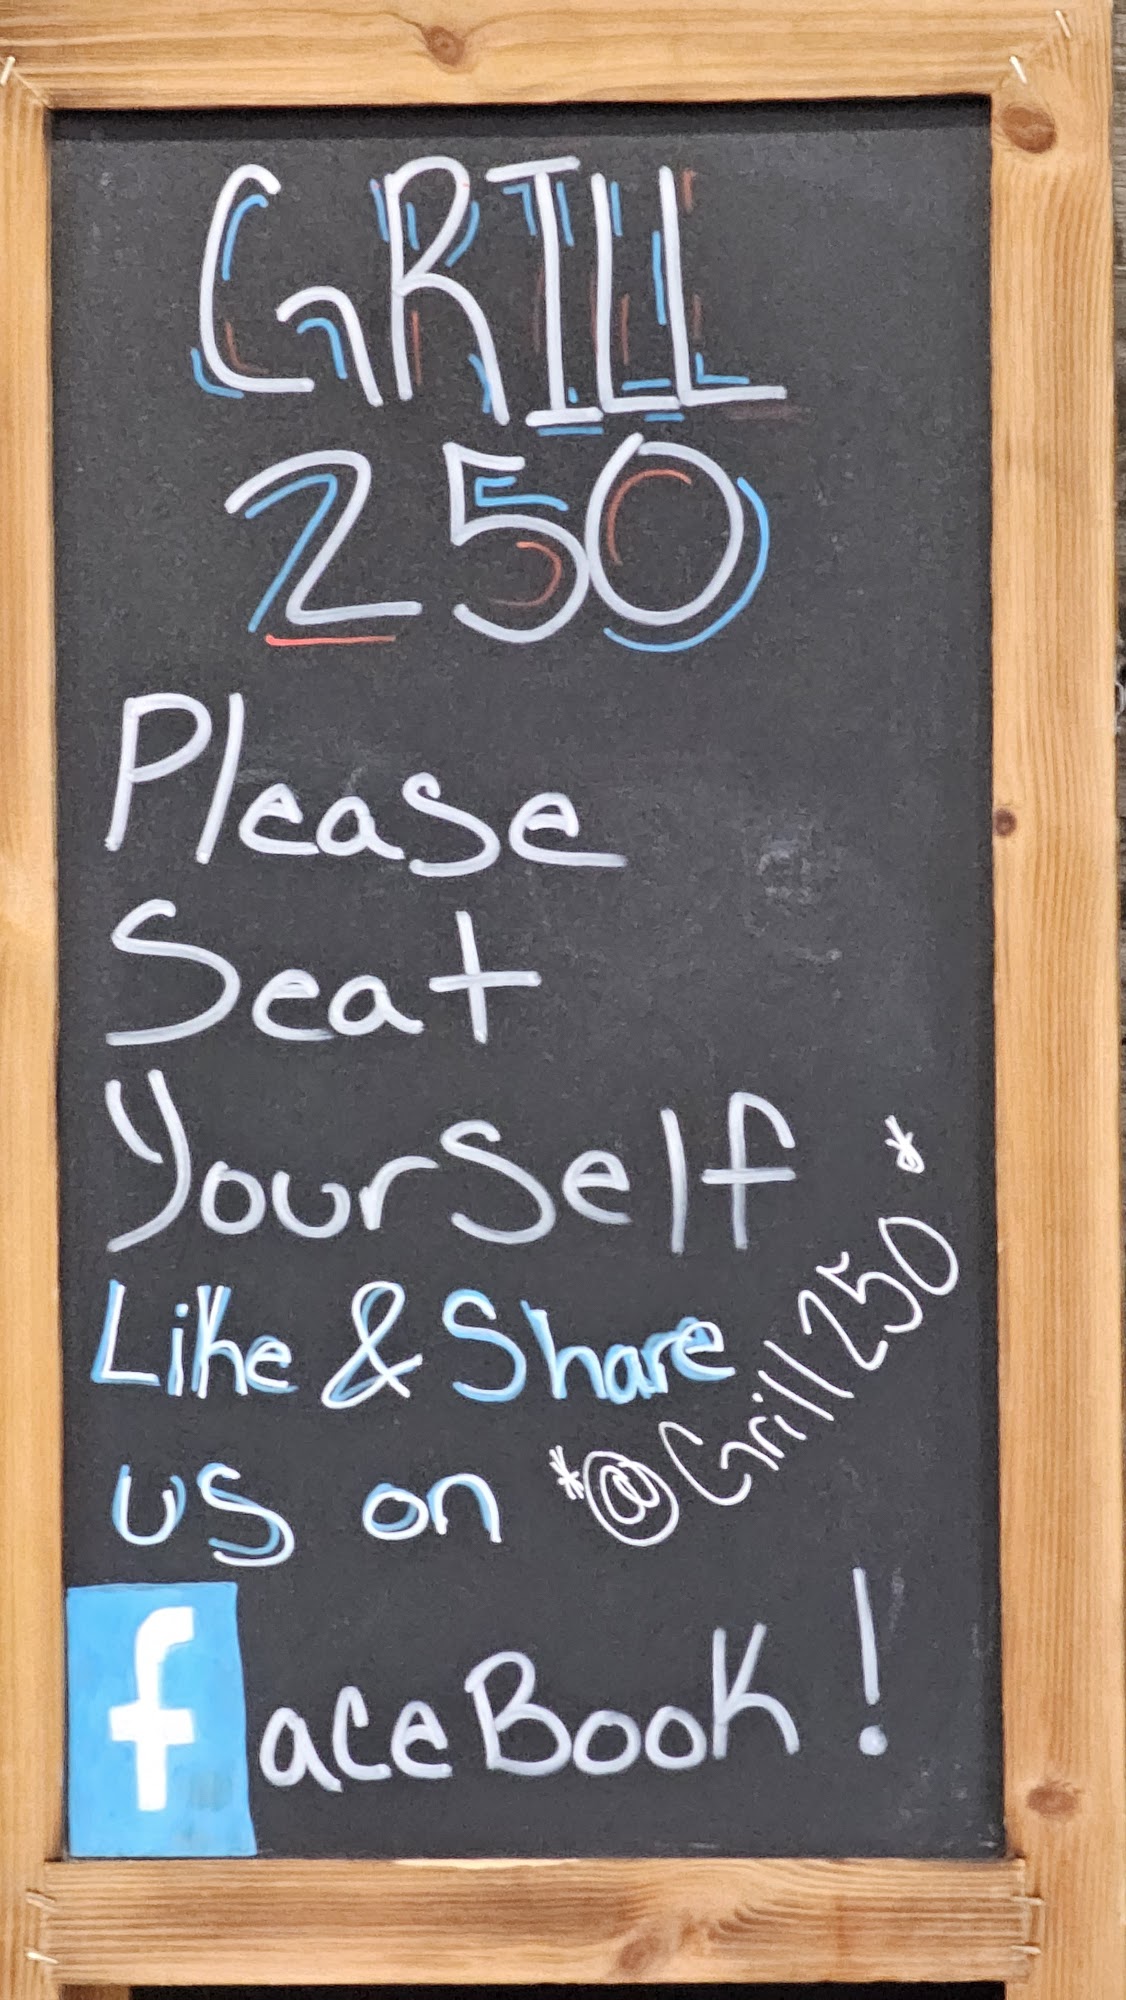 GRILL
250
Please
Seat
Yourself
Like & Share
us on *@Grill250*
faceBook!